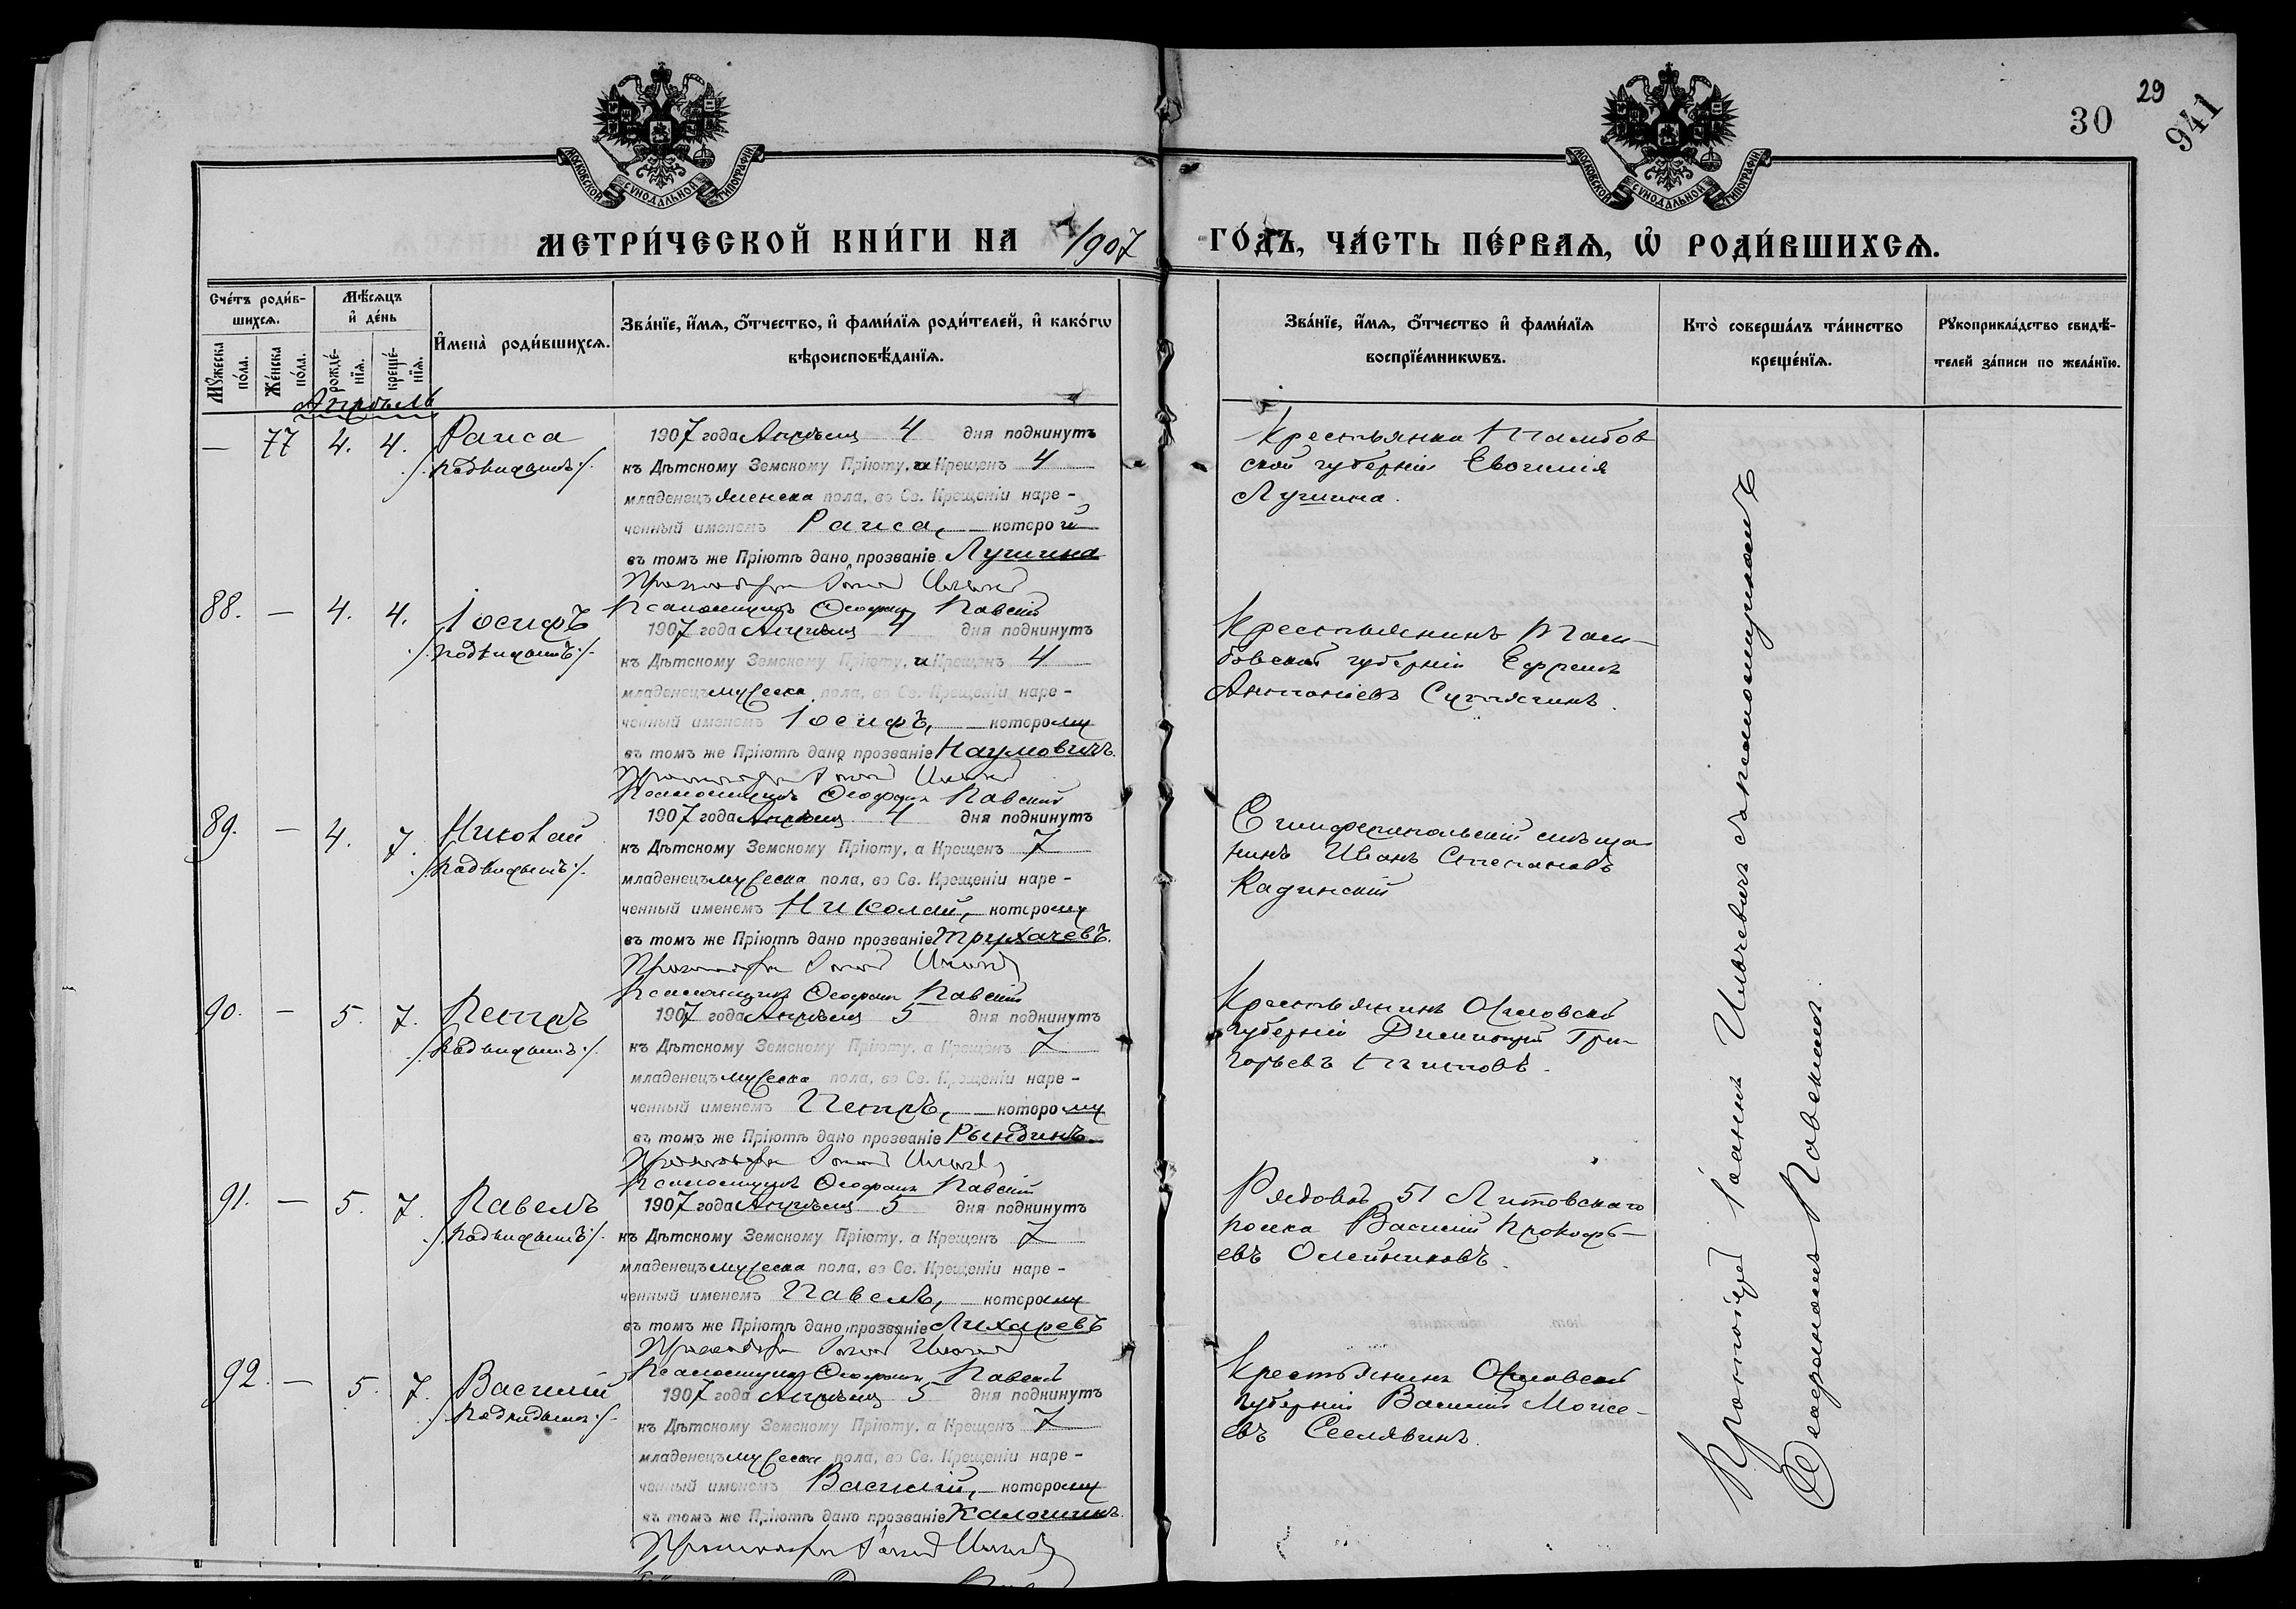 29
30
941
МОСКОВСКОЙ СѴНОДАЛЬНОЙ ТИПОГРАФІИ
МОСКОВСКОЙ СѴНОДАЛЬНОЙ ТИПОГРАФІИ
МЕТРИ́ЧЕСКОЙ КНИ́ГИ НА 1907 ГО́ДЪ, ЧА́СТЬ ПЕ́РВАѦ, Ѽ РОДИ́ВШИХСѦ.
Сче́тъ роди́в-
шихсѧ.
Мꙋ́жеска по́ла.
Же́нска по́ла.
Мѣ́сѧцъ и҆ де́нь
рожде́-
нїѧ.
креще́-
нїѧ.
И҆мена̀ роди́вшихсѧ.
Зва́нїе, и҆́мѧ, ѻ҆́тчество, и҆ фами́лїѧ роди́телей, и҆ како́гѡ
вѣроисповѣ́данїѧ.
Зва́нїе, и҆́мѧ, ѻ҆́тчество и҆ фами́лїѧ
воспрїе́мникѡвъ.
Кто̀ соверша́лъ та́инство
креще́нїѧ.
Рꙋкоприкла́дство свидѣ́-
телей за́писи по жела́нїю.
Апрѣль
— 77 4. 4. Раиса
/подкидышъ/.
1907 года Апрѣля 4 дня подкинутъ
къ Дѣтскому Земскому Пріюту, и Крещенъ 4
младенецъ женска пола, во Св. Крещеніи наре-
ченный именемъ Раиса, которой
въ томъ же Пріютѣ дано прозваніе Лучшина
Псаломщикъ Ѳеофанъ Павскій
Крестьянка Тамбов
ской губерніи Евгенія
88. — 4. 4. Іосифъ
/подкидышъ/.
1907 года Апрѣля 4 дня подкинутъ
къ Дѣтскому Земскому Пріюту, и Крещенъ 4
младенецъ мужеска пола, во Св. Крещеніи наре-
ченный именемъ Іосифъ, которому
въ томъ же Пріютѣ дано прозваніе Наумовичъ.
Псаломщикъ Ѳеофанъ Павскій
Крестьянинъ Там-
бовской губерніи Ефремъ
Антоніевъ
89. — 4. 7. Николай
/подкидышъ/.
1907 года Апрѣля 4 дня подкинутъ
къ Дѣтскому Земскому Пріюту, а Крещенъ 7
младенецъ мужеска пола, во Св. Крещеніи наре-
ченный именемъ Николай, которому
въ томъ же Пріютѣ дано прозваніе Трухачевъ.
Псаломщикъ Ѳеофанъ Павскій
Симферопольскій мѣща-
нинъ Иванъ Степановъ
Кадинскій
90. — 5. 7. Петръ
/подкидышъ/.
1907 года Апрѣля 5 дня подкинутъ
къ Дѣтскому Земскому Пріюту, а Крещенъ 7
младенецъ мужеска пола, во Св. Крещеніи наре-
ченный именемъ Петръ, которому
въ томъ же Пріютѣ дано прозваніе Рындинъ.
Псаломщикъ Ѳеофанъ Павскій
Крестьянинъ Орловской
губерніи Димитрій Гри-
горьевъ Титовъ.
91. — 5. 7. Павелъ
/подкидышъ/.
1907 года Апрѣля 5 дня подкинутъ
къ Дѣтскому Земскому Пріюту, а Крещенъ 7
младенецъ мужеска пола, во Св. Крещеніи наре-
ченный именемъ Павелъ, которому
въ томъ же Пріютѣ дано прозваніе Лихаревъ
Псаломщикъ Ѳеофанъ Павскій
Рядовой 51 Литовскаго
полка Василій Прокофь-
евъ Олейниковъ.
92. — 5. 7. Василій
/подкидышъ/.
1907 года Апрѣля 5 дня подкинутъ
къ Дѣтскому Земскому Пріюту, а Крещенъ 7
младенецъ мужеска пола, во Св. Крещеніи наре-
ченный именемъ Василій, которому
въ томъ же Пріютѣ дано прозваніе Калошинъ.
Крестьянинъ Орловской
губерніи Василій Моисе-
евъ Селявинъ.
Протоіерей Іоаннъ Ильчевичъ съ псаломщикомъ
Ѳеофаномъ Павскимъ.